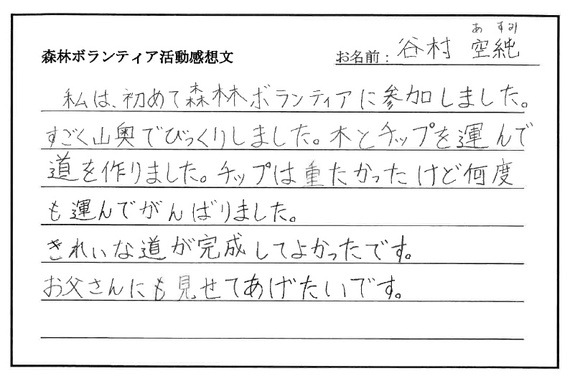 森林ボランティア活動感想文
お名前：谷村 空純
あ すみ
私は、初めて森林ボランティアに参加しました。
すごく山奥でびっくりしました。木とチップを運んで
道を作りました。チップは重たかったけど何度
も運んでがんばりました。
きれいな道が完成してよかったです。
お父さんにも見せてあげたいです。